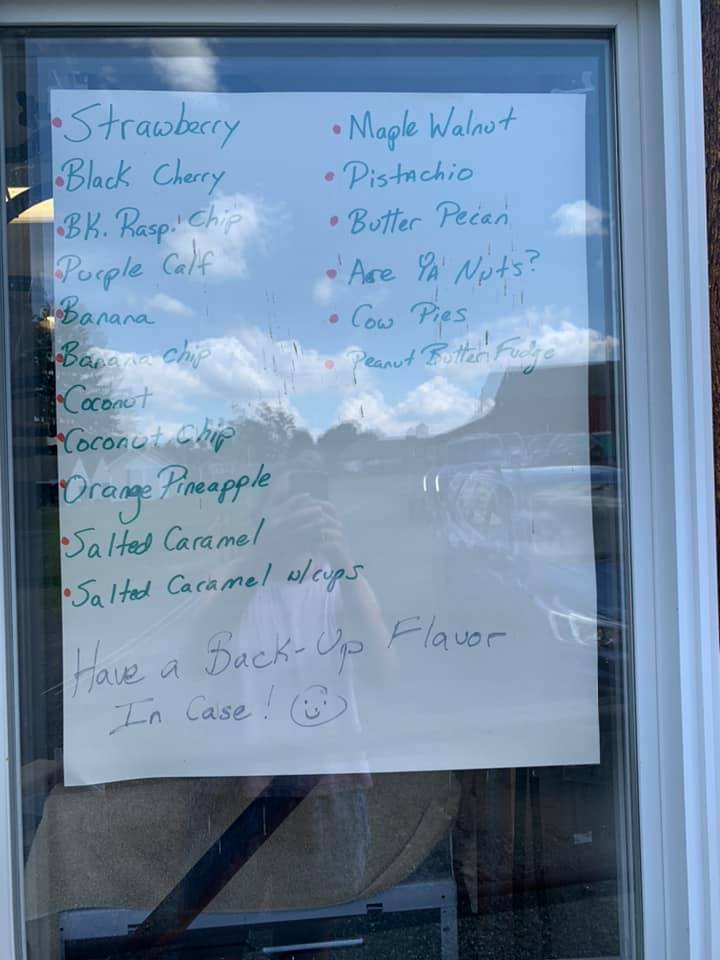 Strawberry
Black Cherry
BK. Rasp. Chip
Purple Calf
Banana
Banana chip
Coconut
Coconut Chip
Orange Pineapple
Salted Caramel
Salted Caramel w/cups
Maple Walnut
Pistachio
Butter Pecan
Are YA Nuts?
Cow Pies
Peanut Butter Fudge
Have a Back-Up Flavor
In Case!